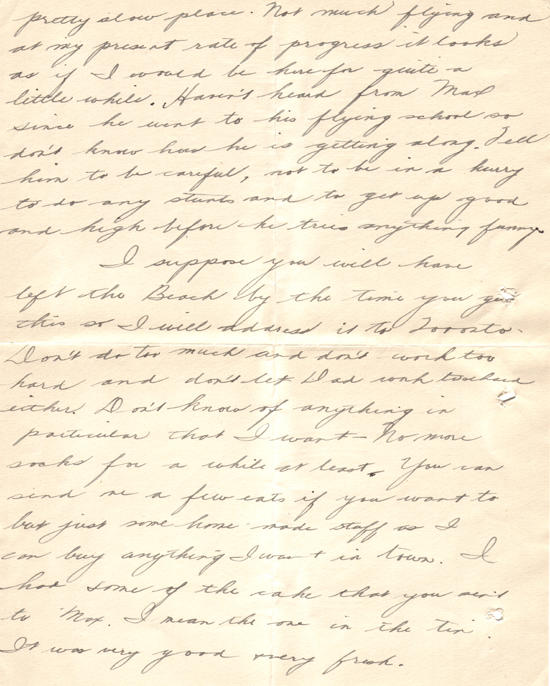 pretty slow place. Not much flying and
at my present rate of progress it looks
as if I would be here for quite a
little while. Haven't heard from Max
since he went to his flying school so
don't know how he is getting along. Tell
him to be careful, not to be in a hurry
to do any stunts and to get up good
and high before he tries anything funny.
I suppose you will have
left the Beach by the time you get
this so I will address it to Toronto.
Don't do too much and don't work too
hard and don't let Dad work too hard
either. Don't know of anything in
particular that I want - No more
socks for a while at least. You can
send me a few eats if you want to
but just some home made stuff as I
can buy anything I want in town. I
had some of the cake that you sent
to Max. I mean the one in the tin.
It was very good & very fresh.